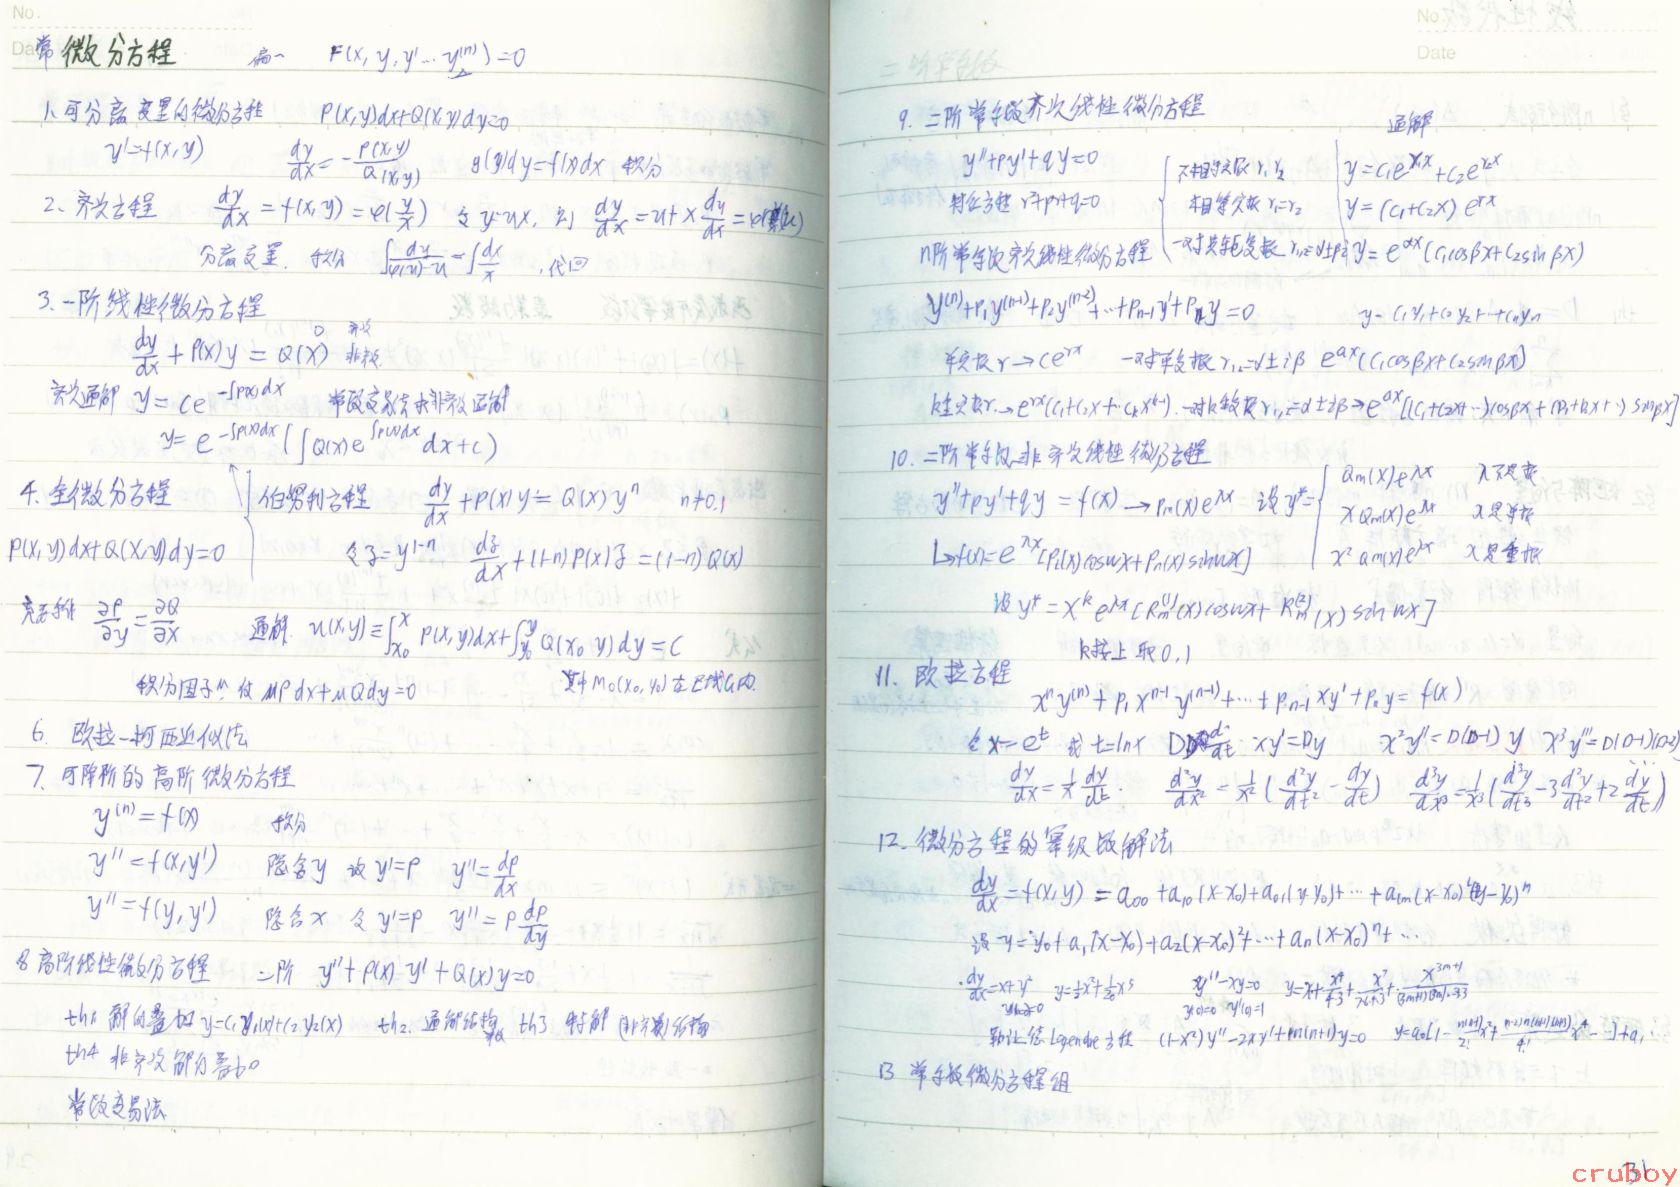 No.
Date
常微分方程 偏一 F(x, y, y' … y⁽ⁿ⁾)=0
1. 可分离变量的微分方程 P(x,y)dx+Q(x,y)dy=0
y'=f(x,y) dy/dx = -P(x,y)/Q(x,y) g(y)dy=f(x)dx 积分
2、齐次方程 dy/dx = f(x,y) = φ(y/x) 令 y=ux, 则 dy/dx = u+x dy/dx = φ(u)
分离变量. 积分 ∫du/(φ(u)-u) = ∫dx/x, 代回
3. 一阶线性微分方程
dy/dx + P(x)y = Q(x) 0 齐次 非齐次
齐次通解 y = ce^(-∫p(x)dx) 常数变易法求非齐次通解
y= e^(-∫p(x)dx) (∫Q(x)e^(∫p(x)dx) dx+c)
伯努利方程 dy/dx + p(x)y = Q(x)yⁿ n≠0,1
令z=y^(1-n) dz/dx + (1-n)P(x)z = (1-n)Q(x)
4. 全微分方程
P(x,y)dx+Q(x,y)dy=0
充要条件 ∂P/∂y = ∂Q/∂x 通解. u(x,y) ≡ ∫_{x₀}^{x} P(x,y)dx + ∫_{y₀}^{y} Q(x₀ y)dy = C
积分因子 μ 使 μPdx+μQdy=0 其中 M₀(x₀, y₀) 在区域G内.
6. 欧拉-柯西近似法
7. 可降阶的高阶微分方程
y⁽ⁿ⁾ = f(x) 积分
y'' = f(x,y') 隐含y 设 y'=p y''= dp/dx
y'' = f(y, y') 隐含 x 令 y'=p y''= p dp/dy
8 高阶线性微分方程 二阶 y''+p(x)y'+Q(x)y=0
th1 解的叠加 y=c₁y₁(x)+c₂y₂(x) th2. 通解结构 th3 特解 (非齐次)结构
th4 非齐次解的叠加
常数变易法
No.
Date
9. 二阶常系数齐次线性微分方程
通解
y''+py'+qy=0 不相等实根 r₁,r₂ y=c₁e^(r₁x)+c₂e^(r₂x)
特征方程 r²+pr+q=0 相等实根 r₁=r₂ y=(c₁+c₂x) e^(rx)
一对共轭复根 r₁,₂=α±βi y= e^(αx)(c₁cosβx+c₂sinβx)
n阶常系数齐次线性微分方程
y⁽ⁿ⁾+p₁y⁽ⁿ⁻¹⁾+p₂y⁽ⁿ⁻²⁾+…+pₙ₋₁y'+pₙy=0 y=c₁y₁+c₂y₂+…+cₙyₙ
单实根 r → ce^(rx) 一对单复根 r₁,₂=α±iβ e^(αx)(c₁cosβx+c₂sinβx)
k重实根r → e^(rx)(c₁+c₂x+…cₖx^(k-1)) 一对k重复根 r₁,₂=α±iβ → e^(αx)[(c₁+c₂x+…)cosβx+(D₁+D₂x+…)sinβx]
10. 二阶常系数非齐次线性微分方程
y''+py'+qy = f(x) → pₘ(x)e^(λx) 设 y*= Qₘ(x)e^(λx) λ不是根
xQₘ(x)e^(λx) λ是单根
x²Qₘ(x)e^(λx) λ是重根
↳f(x)= e^(λx)[Pₗ(x)cosωx+Pₙ(x)sinωx]
设 y*=x^k e^(λx)[Rₘ⁽¹⁾(x)cosωx+Rₘ⁽²⁾(x)sinωx]
k按上取0,1
11. 欧拉方程
xⁿy⁽ⁿ⁾+p₁xⁿ⁻¹y⁽ⁿ⁻¹⁾+…+pₙ₋₁xy'+pₙy=f(x)
令x=e^t 或 t=lnx D d/dt xy'=Dy x²y''=D(D-1)y x³y'''=D(D-1)(D-2)
dy/dx = 1/x dy/dt. d²y/dx² = 1/x²(d²y/dt² - dy/dt) d³y/dx³ = 1/x³(d³y/dt³ - 3d²y/dt² + 2dy/dt)
12. 微分方程的幂级数解法
dy/dx = f(x,y) = a₀₀+a₁₀(x-x₀)+a₀₁(y-y₀)+…+aₗₘ(x-x₀)ˡ(y-y₀)ᵐ
设 y=y₀+a₁(x-x₀)+a₂(x-x₀)²+…+aₙ(x-x₀)ⁿ+…
dy/dx=x+y² y=½x²+1/20x⁵ y''-xy=0 y=x+x⁴/4·3+x⁷/7·6·4·3+x^(3m+1)/(3m+1)(3m)…4·3
y|ₓ₌₀=0 y(0)=0 y'(0)=1
勒让德 Legendre 方程 (1-x²)y''-2xy'+n(n+1)y=0 y=a₀[1-n(n+1)/2! x²+(n-2)n(n+1)(n+3)/4! x⁴-…]+a₁
13 常系数微分方程组
31
cruboy